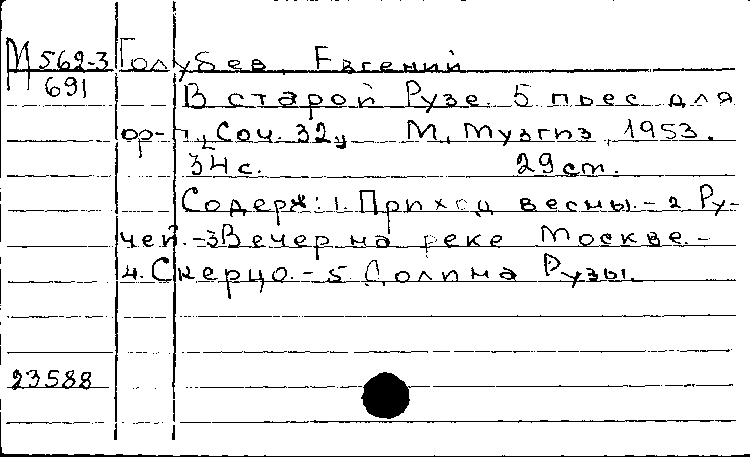 М 562-3 Голубев, Евгений
691
В старой Рузе. 5 пьес для
ор-п., Соч. 32, М, Музгиз, 1953.
34 с. 29 cm.
Содерж: 1. Приход весны. - 2 Ру-
чей. - 3 Вечер на реке Москве. -
4. Скерцо. - 5 Долина Рузы.
23588